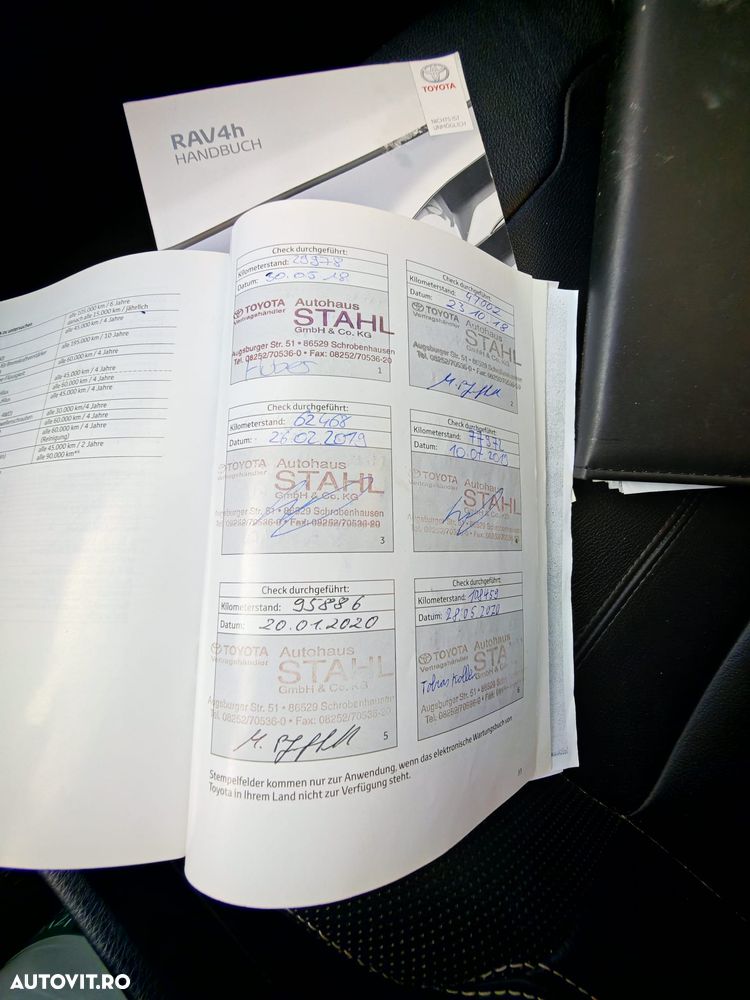 TOYOTA
NICHTS IST
UNMÖGLICH
RAV4h
HANDBUCH
alle 105.000 km / 6 Jahre
danach alle 15.000 km / jährlich
alle 45.000 km / 4 Jahre
alle 195.000 km / 10 Jahre
alle 60.000 km / 4 Jahre
alle 45.000 km / 4 Jahre
alle 60.000 km / 4 Jahre
alle 45.000 km / 4 Jahre
alle 30.000 km / 4 Jahre
alle 60.000 km / 4 Jahre
alle 60.000 km / 4 Jahre
(Reinigung)
alle 45.000 km / 2 Jahre
alle 90.000 km
Check durchgeführt:
Kilometerstand: 29978
Datum: 30.05 18
TOYOTA Autohaus
Vertragshändler STAHL
GmbH & Co. KG
Augsburger Str. 51 • 86529 Schrobenhausen
Tel. 08252/70536-0 • Fax: 08252/70536-20
1
Check durchgeführt:
Kilometerstand: 47002
Datum: 23 10.18
TOYOTA Autohaus
Vertragshändler STAHL
GmbH & Co. KG
Augsburger Str. 51 • 86529 Schrobenhausen
Tel. 08252/70536-0 • Fax: 08252/70536-20
2
Check durchgeführt:
Kilometerstand: 62468
Datum: 26.02.2019
TOYOTA Autohaus
Vertragshändler STAHL
GmbH & Co. KG
Augsburger Str. 51 • 86529 Schrobenhausen
Tel. 08252/70536-0 • Fax: 08252/70536-20
3
Check durchgeführt:
Kilometerstand: 77971
Datum: 10.07.2019
TOYOTA Autohaus
Vertragshändler STAHL
GmbH & Co. KG
Augsburger Str. 51 • 86529 Schrobenhausen
Tel. 08252/70536-0 • Fax: 08252/70536-20
4
Check durchgeführt:
Kilometerstand: 95886
Datum: 20.01.2020
TOYOTA Autohaus
Vertragshändler STAHL
GmbH & Co. KG
Augsburger Str. 51 • 86529 Schrobenhausen
Tel. 08252/70536-0 • Fax: 08252/70536-20
5
Check durchgeführt:
Kilometerstand: 108459
Datum: 28.05.2020
TOYOTA Autohaus
Vertragshändler STA
GmbH & Co. KG
Augsburger Str. 51 • 86529 Schrobenhausen
Tel. 08252/70536-0 • Fax:
6
Stempelfelder kommen nur zur Anwendung, wenn das elektronische Wartungsbuch von
Toyota in Ihrem Land nicht zur Verfügung steht.
AUTOVIT.RO